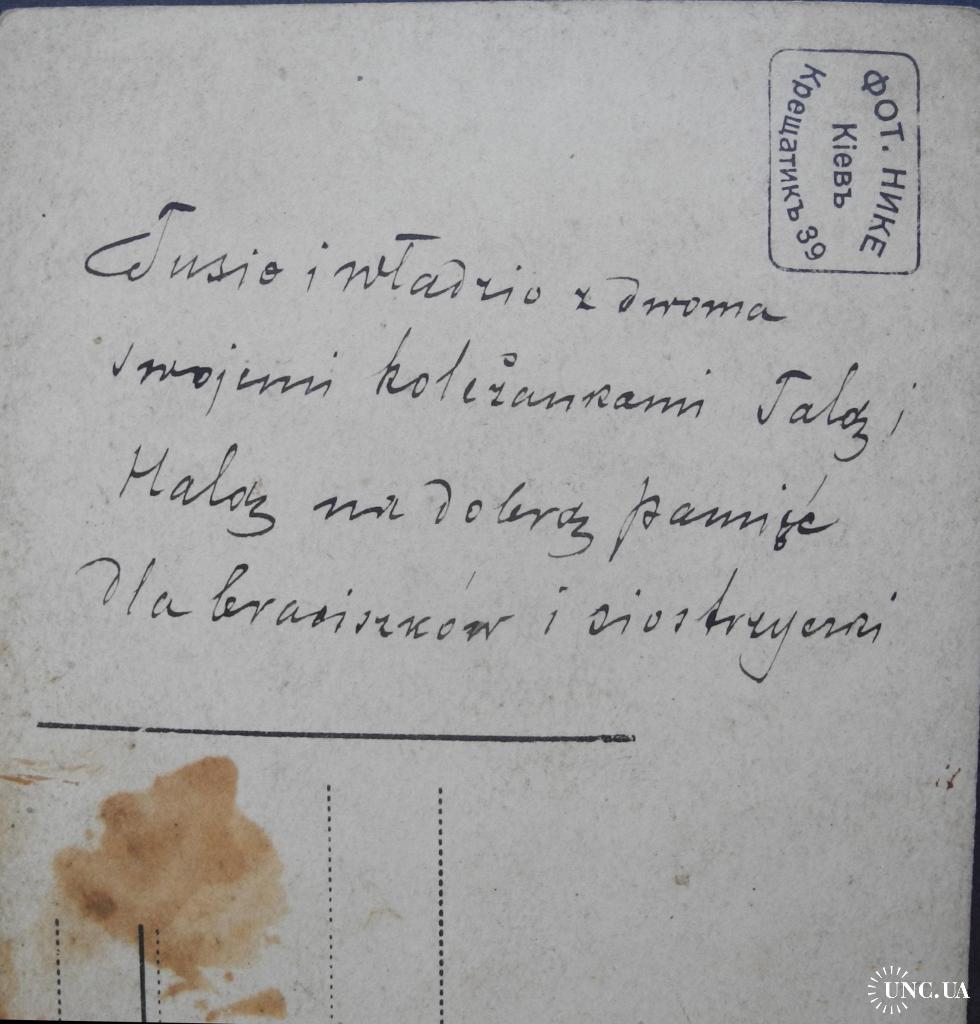 ФОТ. НИКЕ
Кіевъ
Крещатикъ 39
Tusie i Władzio z dwoma
swojemi koleżankami Talą i
Halą na dobrą pamięć
dla braciszków i siostrzyczki
UNC.UA